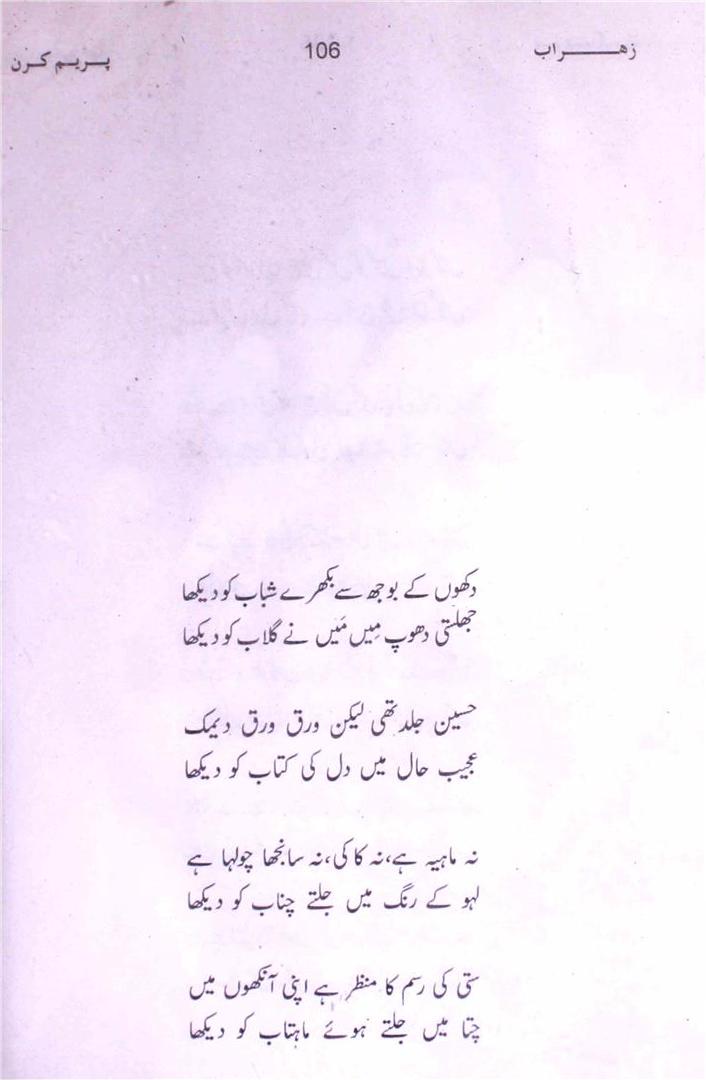 زهراب 106 پریم کرن
دکھوں کے بوجھ سے بکھرے شباب کو دیکھا
جھلستی دھوپ مِیں مَیں نے گلاب کو دیکھا
حسین جلد تھی لیکن ورق ورق دیمک
عجیب حال میں دل کی کتاب کو دیکھا
نہ ماہیہ ہے، نہ کاکی، نہ سانجھا چولہا ہے
لہو کے رنگ میں جلتے چناب کو دیکھا
ستی کی رسم کا منظر ہے اپنی آنکھوں میں
چتا میں جلتے ہوئے ماہتاب کو دیکھا